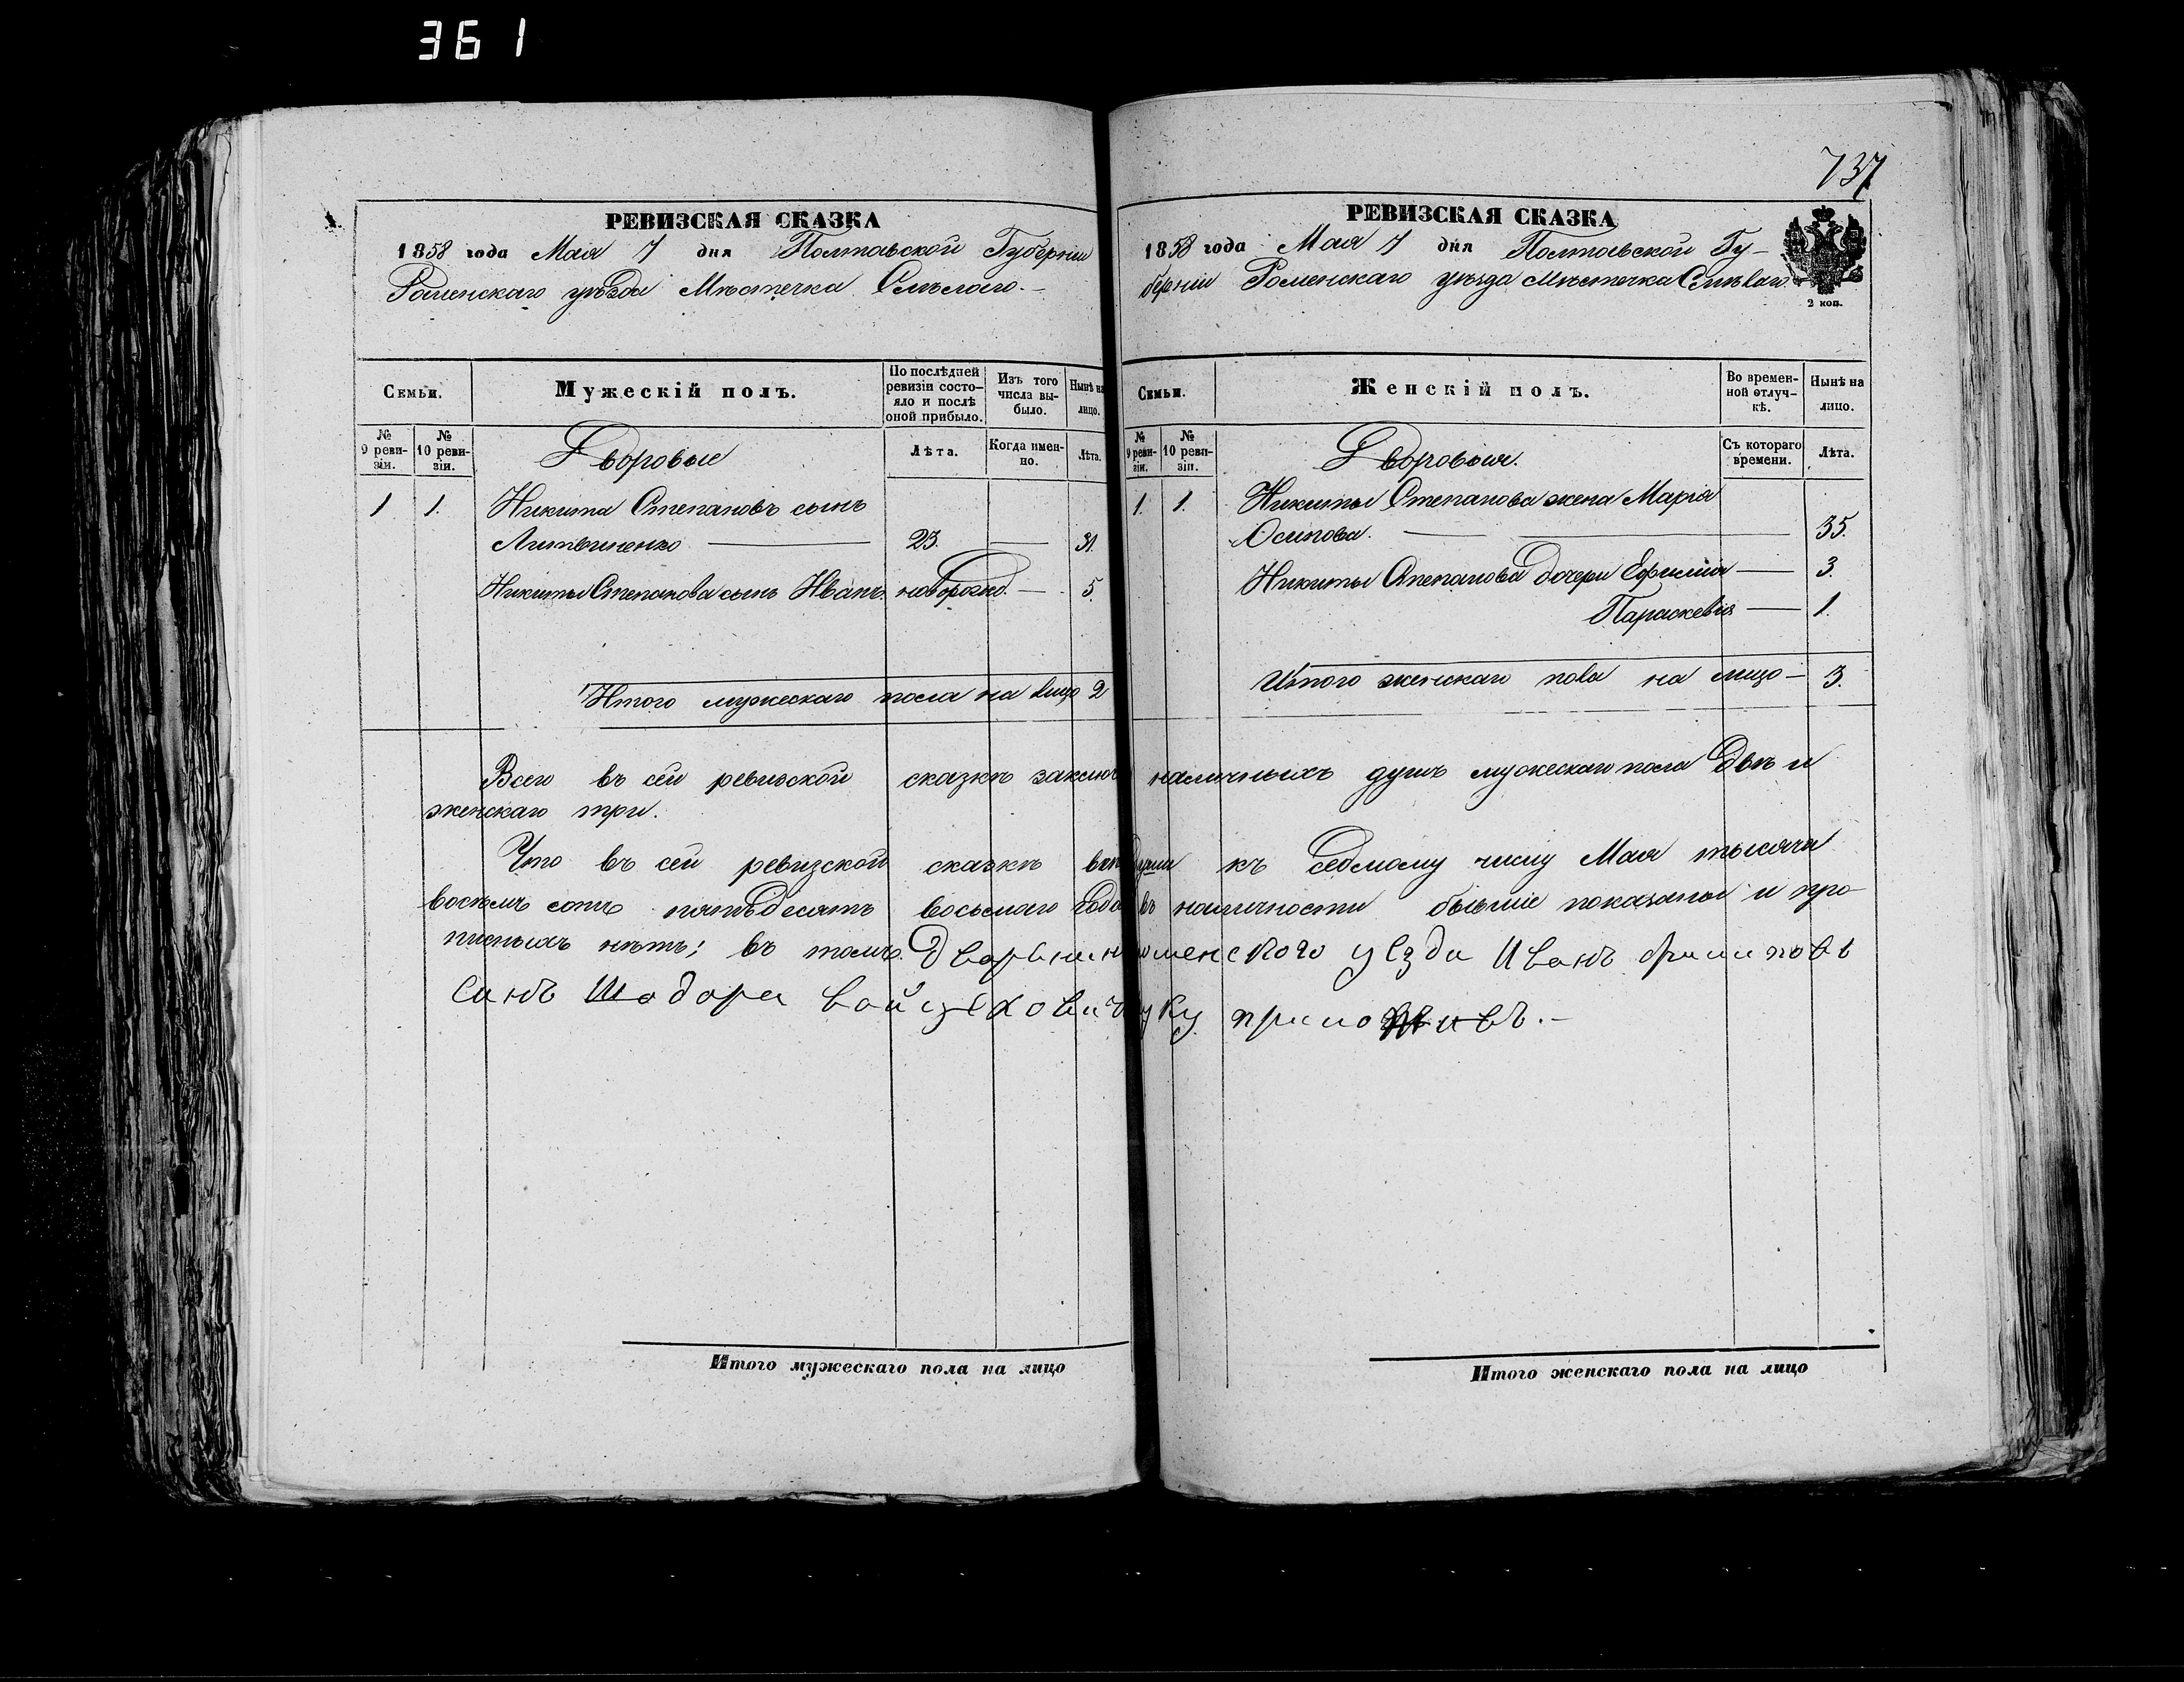 361
737
РЕВИЗСКАЯ СКАЗКА
1858 года Мая 7 дня Полтавской Губерніи
Роменскаго уѣзда Мѣстечка Смѣлаго.
Семьи.
Мужескій полъ.
По послѣдней ревизіи состояло и послѣ оной прибыло.
Изъ того числа выбыло.
Нынѣ на лицо.
№ 9 ревизіи.
№ 10 ревизіи.
Дворовые
Лѣта.
Когда именно.
Лѣта.
1 1. Никита Степановъ сынъ
Литвиненко 23. 31.
Никиты Степанова сынъ Иванъ новорожд. 5.
Итого мужескаго пола на лицо 2
РЕВИЗСКАЯ СКАЗКА
1858 года Мая 7 дня Полтавской Гу-
берніи Роменскаго уѣзда Мѣстечка
2 коп.
Семьи.
Женскій полъ.
Во временной отлучкѣ.
Нынѣ на лицо.
№ 9 ревизіи.
№ 10 ревизіи.
Дворовыя.
Съ котораго времени.
Лѣта.
1. 1. Никиты Степанова жена Марія
Осипова. 35.
Никиты Степанова дочери Ефимія 3.
Параскевія 1.
Итого женскаго пола на лицо 3.
Всего въ сей ревизской сказкѣ наличныхъ душъ мужескаго пола двѣ и
женскаго три.
Что въ сей ревизской сказкѣ къ седмому числу Мая тысяча
восемь сотъ пятьдесятъ восьмаго года въ наличности бывшіе показаны и про-
писныхъ нѣтъ; въ томъ уезда Иванъ
синъ приложивъ.
Итого мужескаго пола на лицо
Итого женскаго пола на лицо